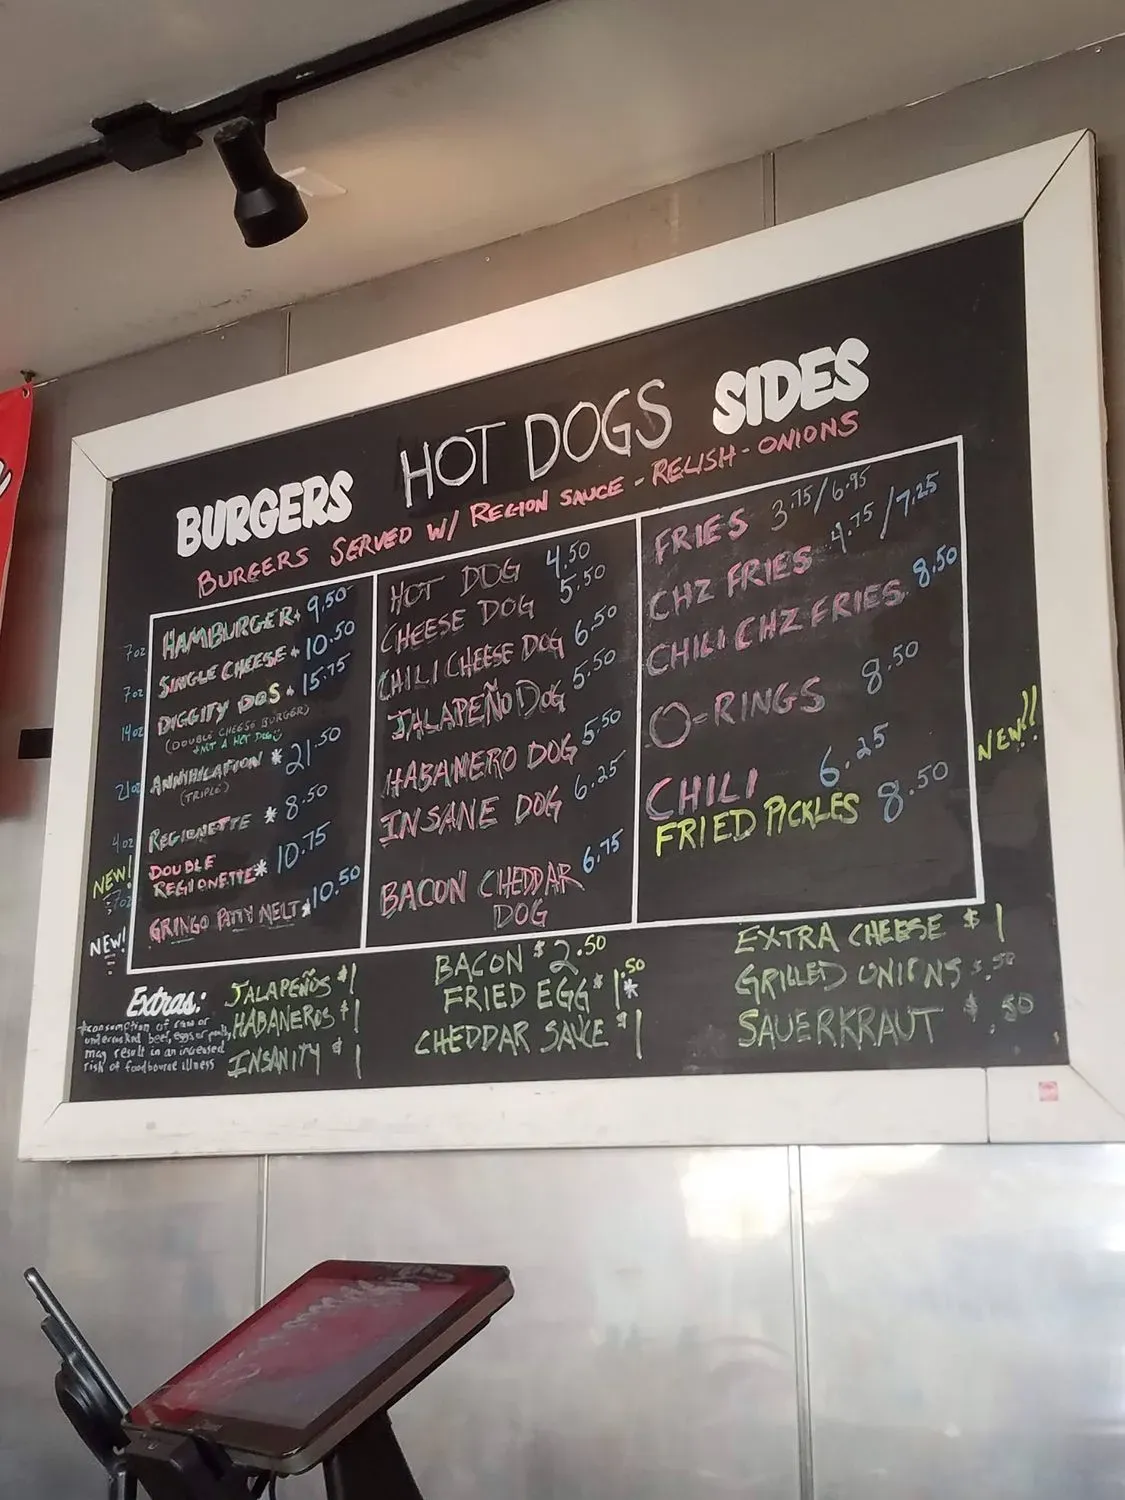 BURGERS HOT DOGS SIDES
BURGERS SERVED W/ REGION SAUCE - RELISH - ONIONS
7oz HAMBURGER* 9.50
7oz SINGLE CHEESE * 10.50
14oz DIGGITY DOS * 15.75
(DOUBLE CHEESE BURGER)
*NOT A HOT DOG
21oz ANNIHILATION * 21.50
(TRIPLE)
4oz REGIONETTE * 8.50
NEW! DOUBLE
7oz REGIONETTE* 10.75
NEW! GRINGO PATTY MELT* 10.50
HOT DOG 4.50
CHEESE DOG 5.50
CHILI CHEESE DOG 6.50
JALAPEÑO DOG 5.50
HABANERO DOG 5.50
INSANE DOG 6.25
BACON CHEDDAR 6.75
DOG
FRIES 3.75/6.95
CHZ FRIES 4.75/7.25
CHILI CHZ FRIES 8.50
O-RINGS 8.50
CHILI 6.25
FRIED PICKLES 8.50
NEW!!
Extras:
*consumption of raw or
undercooked beef, eggs or poultry
may result in an increased
risk of foodbourne illness
JALAPEÑOS $1
HABANEROS $1
INSANITY $1
BACON $2.50
FRIED EGG $1.50*
CHEDDAR SAUCE $1
EXTRA CHEESE $1
GRILLED ONIONS $.50
SAUERKRAUT $.50